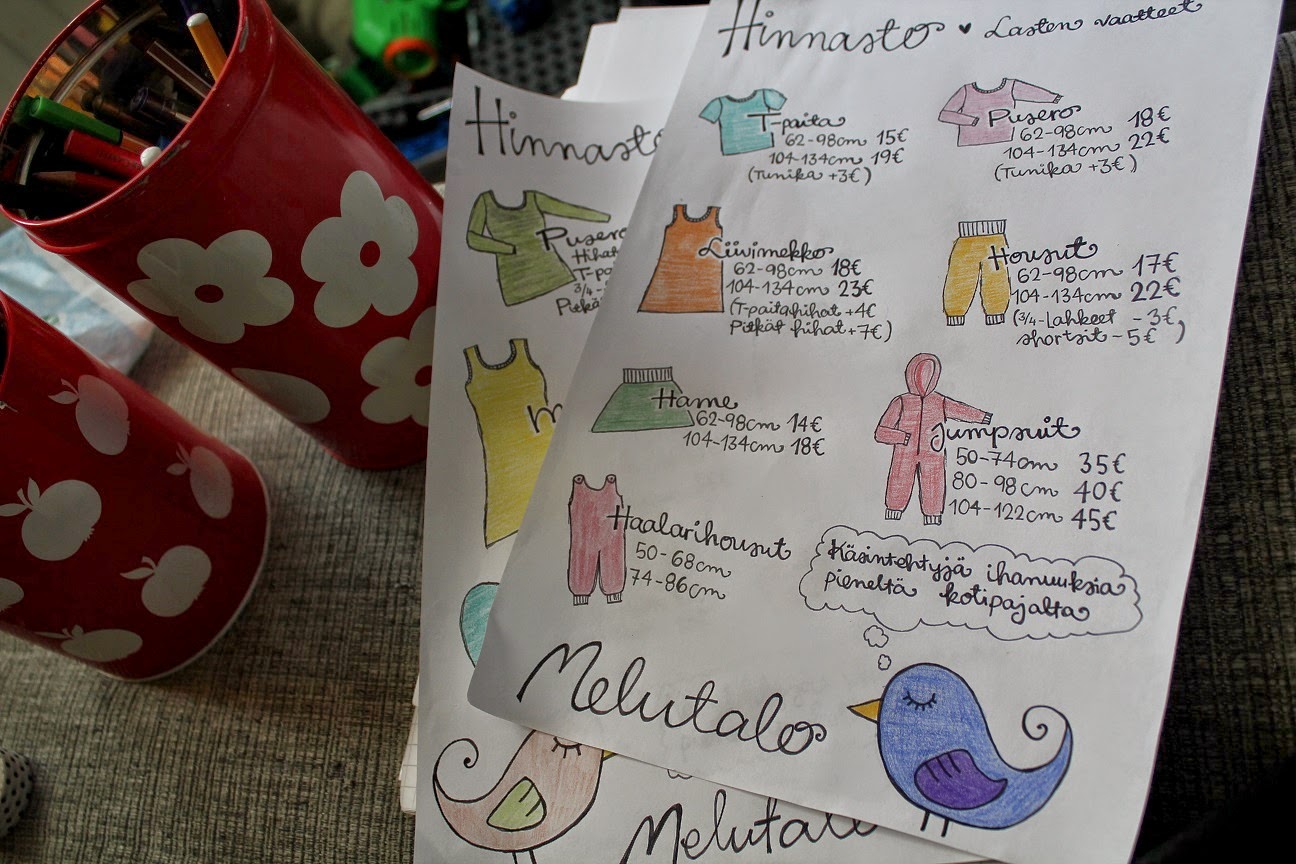 Hinnasto ♥ Lasten vaatteet
T-paita
62-98cm 15€
104-134cm 19€
(Tunika +3€)
Pusero
62-98cm 18€
104-134cm 22€
(Tunika +3€)
Liivimekko
62-98cm 18€
104-134cm 23€
(T-paitahihat +4€
Pitkät hihat +7€)
Housut
62-98cm 17€
104-134cm 22€
(3/4-Lahkeet -3€,
shortsit -5€)
Hame
62-98cm 14€
104-134cm 18€
Jumpsuit
50-74cm 35€
80-98cm 40€
104-122cm 45€
Haalarihousut
50-68cm
74-86cm
Käsintehtyjä ihanuuksia
pieneltä kotipajalta
Melutalo
Hinnasto
Pusero
Hihat
T-pa
3/4-
Pitkä
Melutalo